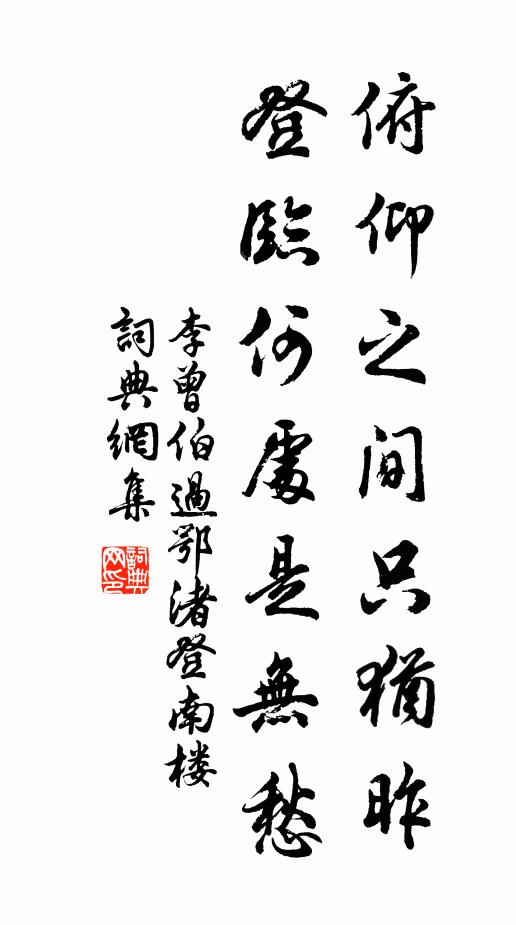 俯仰之间只猶昨
登臨何處是無愁
李曾伯過鄂渚登南楼
詞典網集
詞典
网印